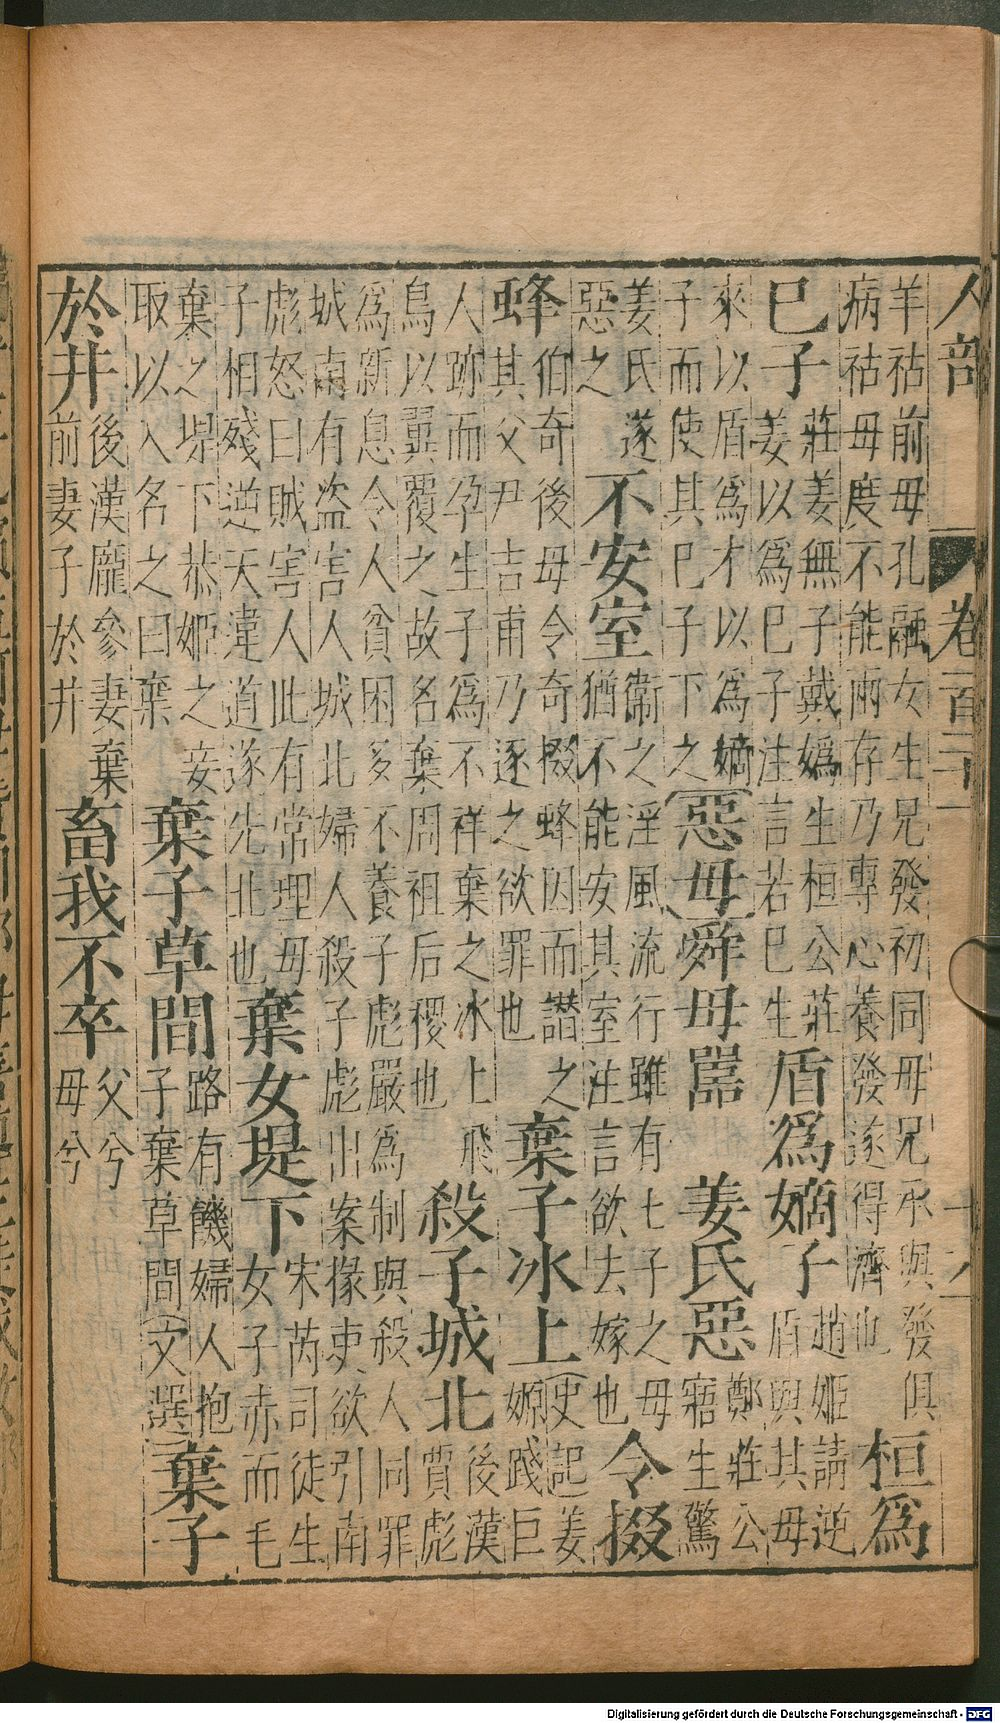 人部 卷
羊祜前母孔融女生兄發初同母兄承與發俱
病祜母度不能兩存乃專心養發遂得濟也
桓為
巳子
莊姜無子戴媯生桓公莊
姜以為巳子注言若巳生
盾為嫡子
趙姬請逆
盾與其母
來以盾為才以為嫡
子而使其巳子下之
惡母
舜母嚚
姜氏惡
鄭莊公
寤生驚
姜氏遂
惡之
不安室
衛之淫風流行雖有七子之母
猶不能安其室注言欲去嫁也
令掇
蜂
伯奇後母令奇掇蜂因而譖之
其父尹吉甫乃逐之欲罪也
棄子冰上
史記姜
嫄踐巨
人跡而孕生子為不祥棄之冰上飛
鳥以翼覆之故名棄周祖后稷也
殺子城北
後漢
賈彪
為新息令人貧困多不養子彪嚴為制與殺人同罪
城南有盜害人城北婦人殺子彪出案掾吏欲引南
彪怒曰賊害人此有常理母
子相殘逆天違道遂先北也
棄女堤下
宋芮司徒生
女子赤而毛
棄之堤下恭姬之妾
取以入名之曰棄
棄子草間
路有饑婦人抱
子棄草間文選
棄子
於井
後漢龐參妻棄
前妻子於井
畜我不卒
父兮
母兮
Digitalisierung gefördert durch die Deutsche Forschungsgemeinschaft - DFG